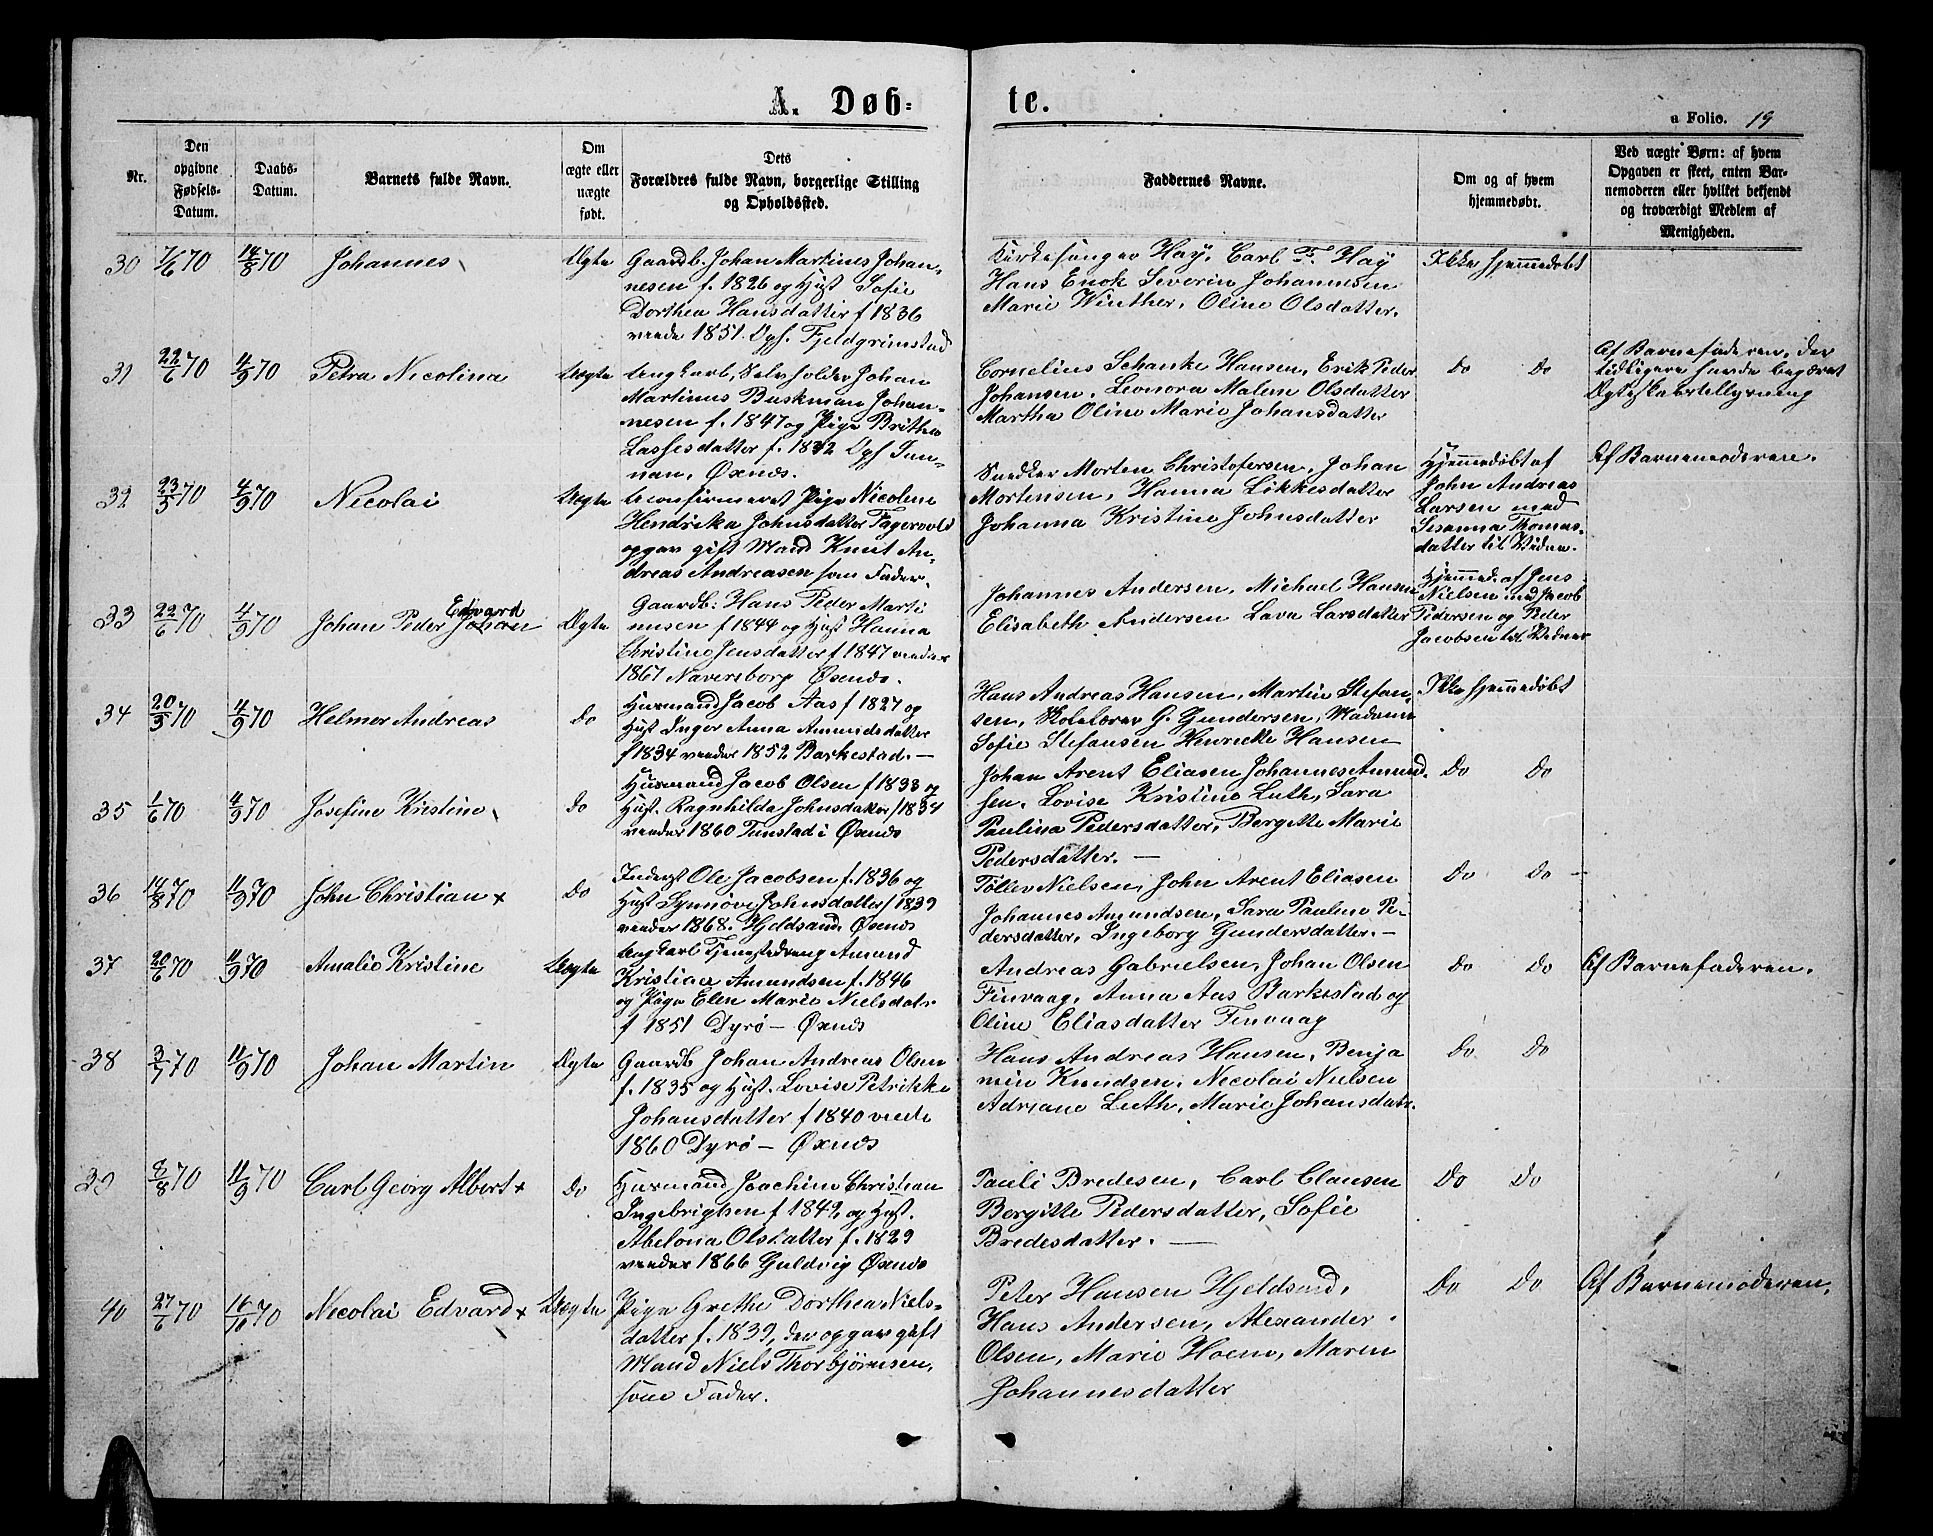 A. Døb=
te.
a Folio. 19
Nr.
Den opgivne Fødsels-Datum.
Daabs-Datum.
Barnets fulde Navn.
Om ægte eller uægte født.
Dets Forældres fulde Navn, borgerlige Stilling og Opholdssted.
Faddernes Navne.
Om og af hvem hjemmedøbt.
Ved uægte Børn: af hvem Opgaven er skeet, enten Barnemoderen eller hvilket bekjendt og troværdigt Medlem af Menigheden.
30 7/6 70 14/8 70 Johannes Ægte
Gaardb. Johan Martines Johan-
nesen f. 1826 og Hust Sofie
Dorthea Hansdatter f 1836
viede 1851. Fjeldgrimstad
Kirkesanger Høy, Carl F. Høy
Hans Enok Severin Johannesen
Marie Winther, Oline Olsdatter.
Ikke hjemmedøbt
31 22/6 70 4/9 70 Petra Nicolina Uægte
Ungkarl, Johan
Martinus Buskman Johan-
nesen f. 1847 og Pige Brithe
Lassesdatter f. 1842
Øxnes.
Cornelius Schanke Hansen, Erik Peder
Johansen, Leonora Malene Olsdatter
Martha Oline Marie Johansdatter
Do Do
Af Barnefaderen, der
tidligere havde begjæret
Ægteskabstillysning
32 23/5 70 4/9 70 Nicolai Uægte
Uconfirmeret Pige Nicoline
Hendrika Johnsdatter
opgav gift Mand Knut An-
dreas Andreasen som Fader.
Snedker Morten Christofersen, Johan
Mortensen, Hanna Likkesdatter
Johanna Kristine Johnsdatter
Hjemmedøbt af
John Andreas
Larsen med
Susanna Thomas-
datter til Vidne.
Af Barnemoderen.
33 22/6 70 4/9 70 Johan Peder Edvard Johan Ægte
Gaardb: Hans Peder Marti
nusen f 1844 og Hust Hanna
Christine Jensdatter f 1847 viede
1867 Naversborg Øxnes.
Johannes Andersen, Michael Hansen
Elisabeth Andersen Lava Larsdatter
Hjemmed. af Jens
Nielsen med Jacob
Pedersen og Peder
Jacobsen til Vidner
34 20/5 70 4/9 70 Helmer Andreas Do
Husmand Jacob Aas f 1827 og
Hust Inger Anna Amundsdatter
f 1834 viede 1852 Barkestad. —
Hans Andreas Hansen, Martin Stefan-
sen, Skolelærer G. Gundersen, Madame
Sofie Stefansen Henrikke Hansen
Ikke hjemmedøbt
35 1/6 70 4/9 70 Josefine Kristine Do
Husmand Jacob Olsen f 1833 og
Hust. Ragnhilda Johnsdatter f 1834
viede 1860 Tunstad i Øxnes
Johan Arent Eliasen Johannes Amund-
sen, Lovise Kristine Luth, Sara
Paulina Pedersdatter, Bergitte Marie
Pedersdatter. —
Do Do
36 14/8 70 11/9 70 John Christian x Do
Inderst Ole Jacobsen f. 1836 og
Hust Synnøve Johnsdatter f 1839
viede 1868. Hjeldsand, Øxnes
Tøllev Nielsen, John Arent Eliasen
Johannes Amundsen, Sara Pauline Pe-
dersdatter, Ingeborg Gundersdatter. —
Do Do —
37 20/6 70 11/9 70 Amalie Kristine Uægte
Ungkarl Tjenestedreng Amund
Kristian Amundsen f. 1846
og Pige Elen Marie Nielsdatr
f 1851 Dyrø — Øxnes
Andreas Gabrielsen, Johan Olsen
Finvaag, Anna Aas Barkestad og
Oline Eliasdatter Finvaag
Do Do
Af Barnefaderen.
38 3/7 70 11/9 70 Johan Martin Ægte
Gaardb Johan Andreas Olsen
f. 1835 og Hust. Lovise Petrikke
Johansdatter f 1840 viede
1860 Dyrø — Øxnes
Hans Andreas Hansen, Benja
min Knudsen, Nicolai Nielsen
Adriane Luth, Marie Johansdatr.
Do Do
39 8/8 70 11/9 70 Carl Georg Albert x Do
Husmand Joachim Christian
Ingebrigtsen f 1842 og Hust.
Abelona Olsdatter f. 1829
viede 1866 Guldvig Øxnes
Pauli Bredesen, Carl Clausen
Bergitte Pedersdatter, Sofie
Bredesdatter. —
Do Do
40 27/6 70 16/10 70 Nicolai Edvard x Uægte
Pige Grethe Dorthea Niels-
datter f. 1839, der opgav gift
Mand Niels Thorbjørnsen,
som Fader.
Peter Hansen Hjeldsand,
Hans Andersen, Alexander
Olsen, Marie Hoem, Maren
Johannesdatter
Do Do
Af Barnemoderen.